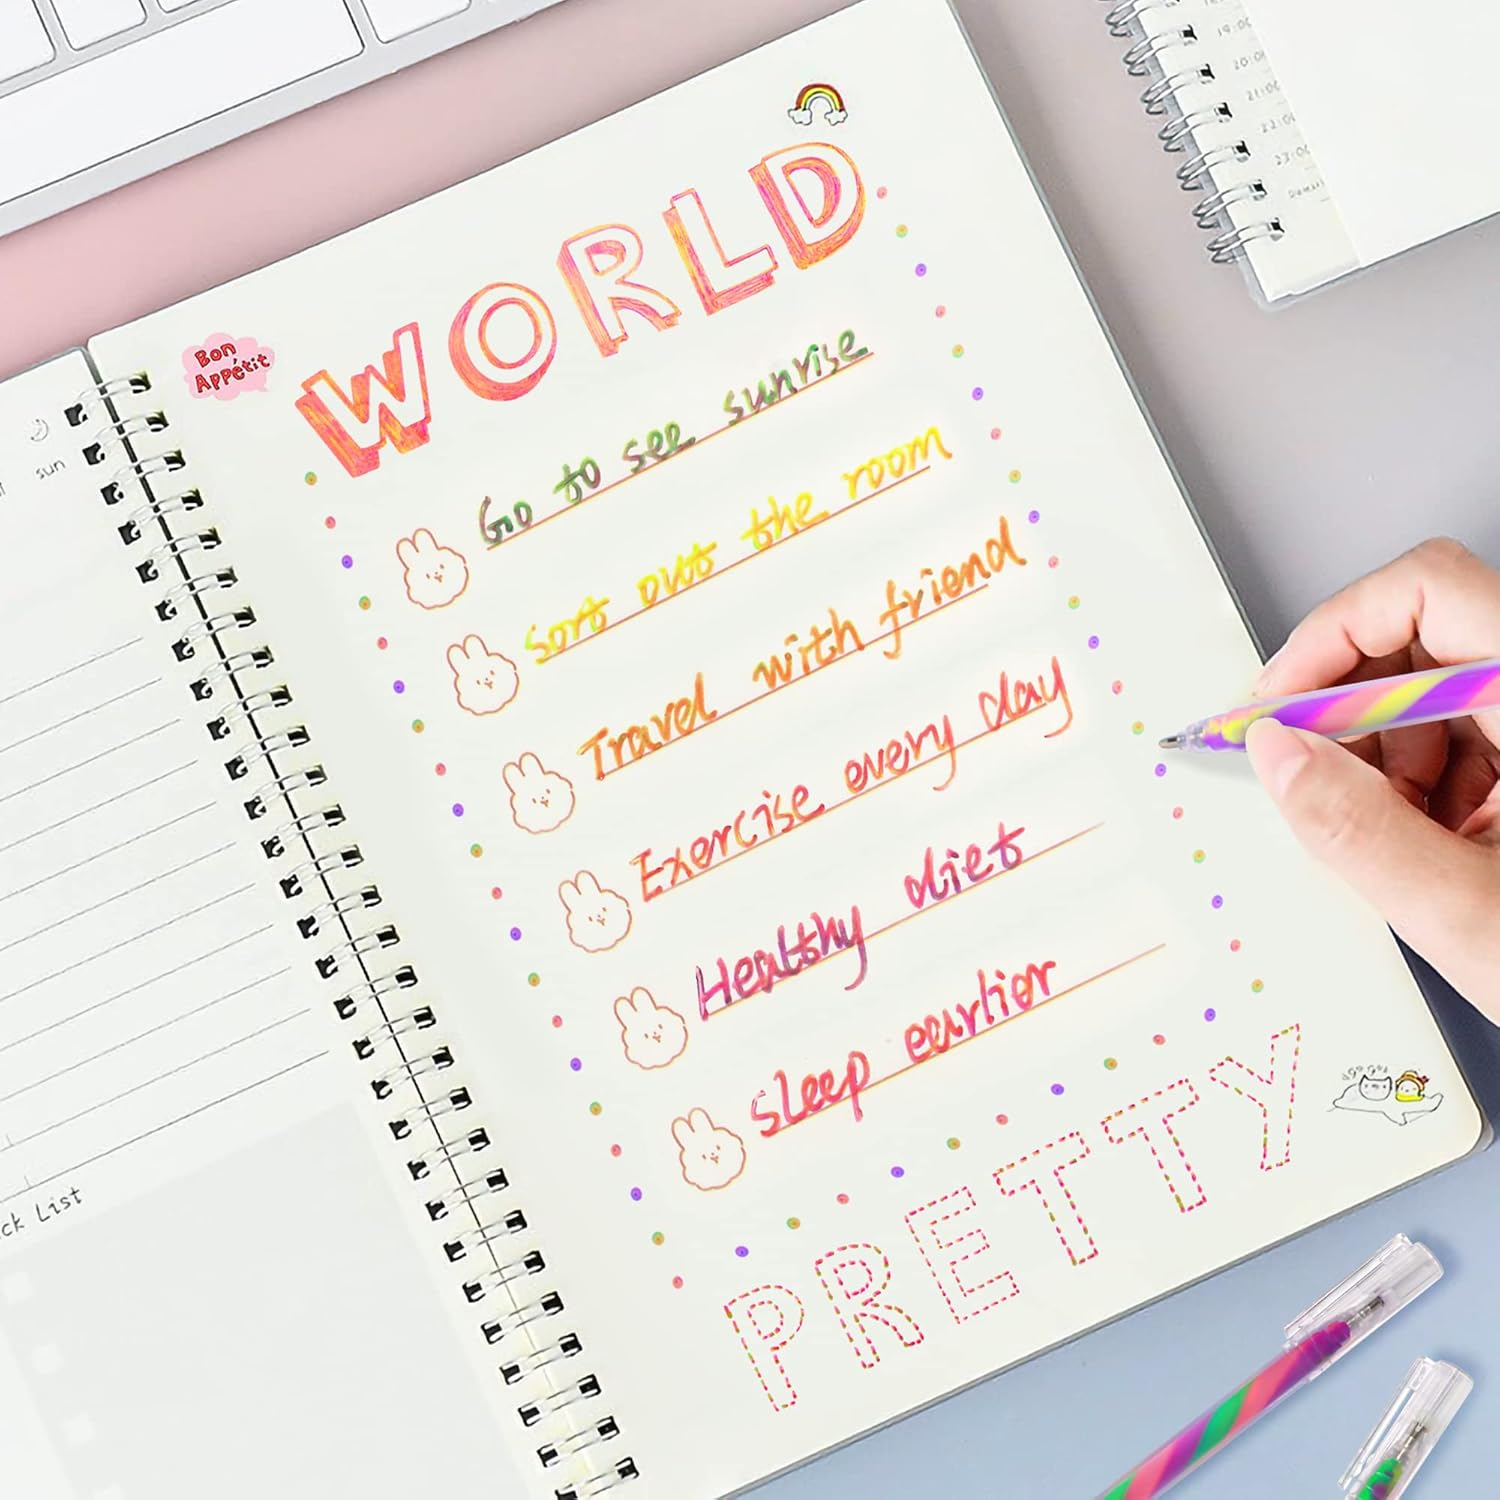 WORLD
Bon
Appétit
Go to see sunrise
Sort out the room
Travel with friend
Exercise every day
Healthy diet
sleep earlier
PRETTY
sun
ck List
19:00
20:00
21:00
22:00
23:00